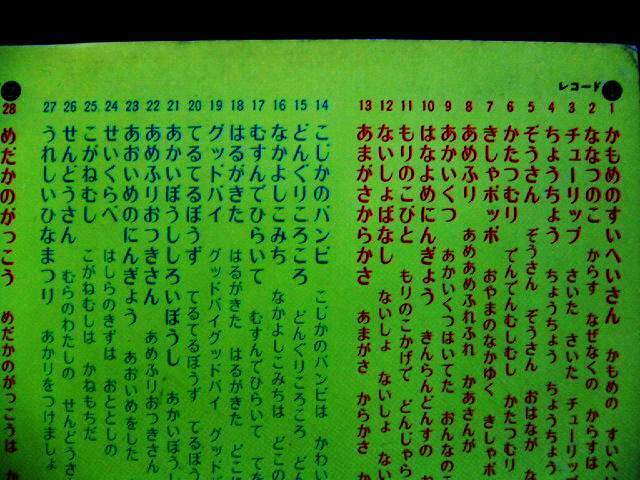 レコード
1 かもめのすいへいさん かもめの すいへい
2 ななつのこ からす なぜなくの からすは
3 チューリップ さいた さいた チューリップ
4 ちょうちょう ちょうちょう ちょうちょう
5 ぞうさん ぞうさん ぞうさん おはなが
6 かたつむり でんでんむしむし かたつむり
7 きしゃポッポ おやまのなかゆく きしゃポ
8 あめふり あめあめふれふれ かあさんが
9 あかいくつ あかいくつはいてた おんなのこ
10 はなよめにんぎょう きんらんどんすの
11 もりのこびと もりのこかげで どんじゃら
12 ないしょばなし ないしょ ないしょ ない
13 あまがさからかさ あまがさ からかさ
14 こじかのバンビ こじかのバンビは かわい
15 どんぐりころころ どんぐりころころ どん
16 なかよしこみち なかよしこみちは どこの
17 むすんでひらいて むすんでひらいて てを
18 はるがきた はるがきた はるがきた どこに
19 グッドバイ グッドバイグッドバイ グッドバ
20 てるてるぼうず てるてるぼうず てるぼう
21 あかいぼうししろいぼうし あかいぼうし
22 あめふりおつきさん あめふりおつきさん
23 あおいめのにんぎょう あおいめをした
24 せいくらべ はしらのきずは おととしの
25 こがねむし こがねむしは かねもちだ
26 せんどうさん むらのわたしの せんどうさ
27 うれしいひなまつり あかりをつけましょ
28 めだかのがっこう めだかのがっこうは か